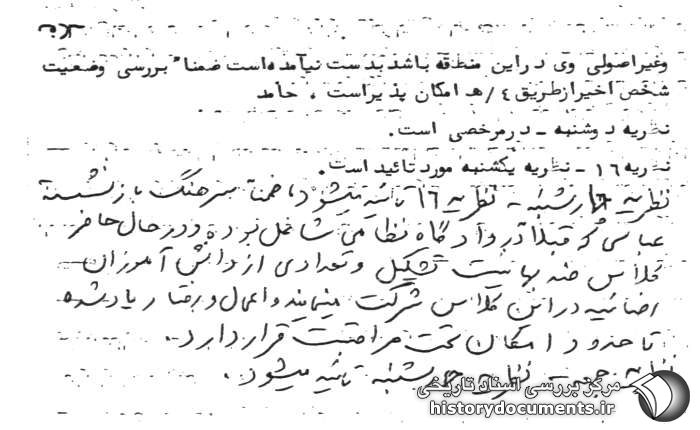 وغیراصولی وی در این منطقه باشد بدست نیامده است ضمنا" بررسی وضعیت
شخص اخیر از طریق ٤/ هـ امکان پذیر است ، حامد
نظریه دوشنبه ـ در مرخصی است .
نظریه ١٦ ـ نظریه یکشنبه مورد تائید است .
نظریه چهارشنبه ـ نظریه ١٦ تائید میشود ضمناً سرهنگ بازنشسته
عباسی که قبلاً در دادگاه نظامی شاغل بوده و در حال حاضر
کلاس ضد بهائیت تشکیل و تعدادی از دانش آموزان
رضائیه در این کلاس شرکت مینمایند و اعمال و رفتار یاد شده
تا حدود امکان تحت مراقبت قرار دارد .
نظریه جمعه ـ نظریه چهارشنبه تائید میشود .
مرکز بررسی اسناد تاریخی
historydocuments.ir